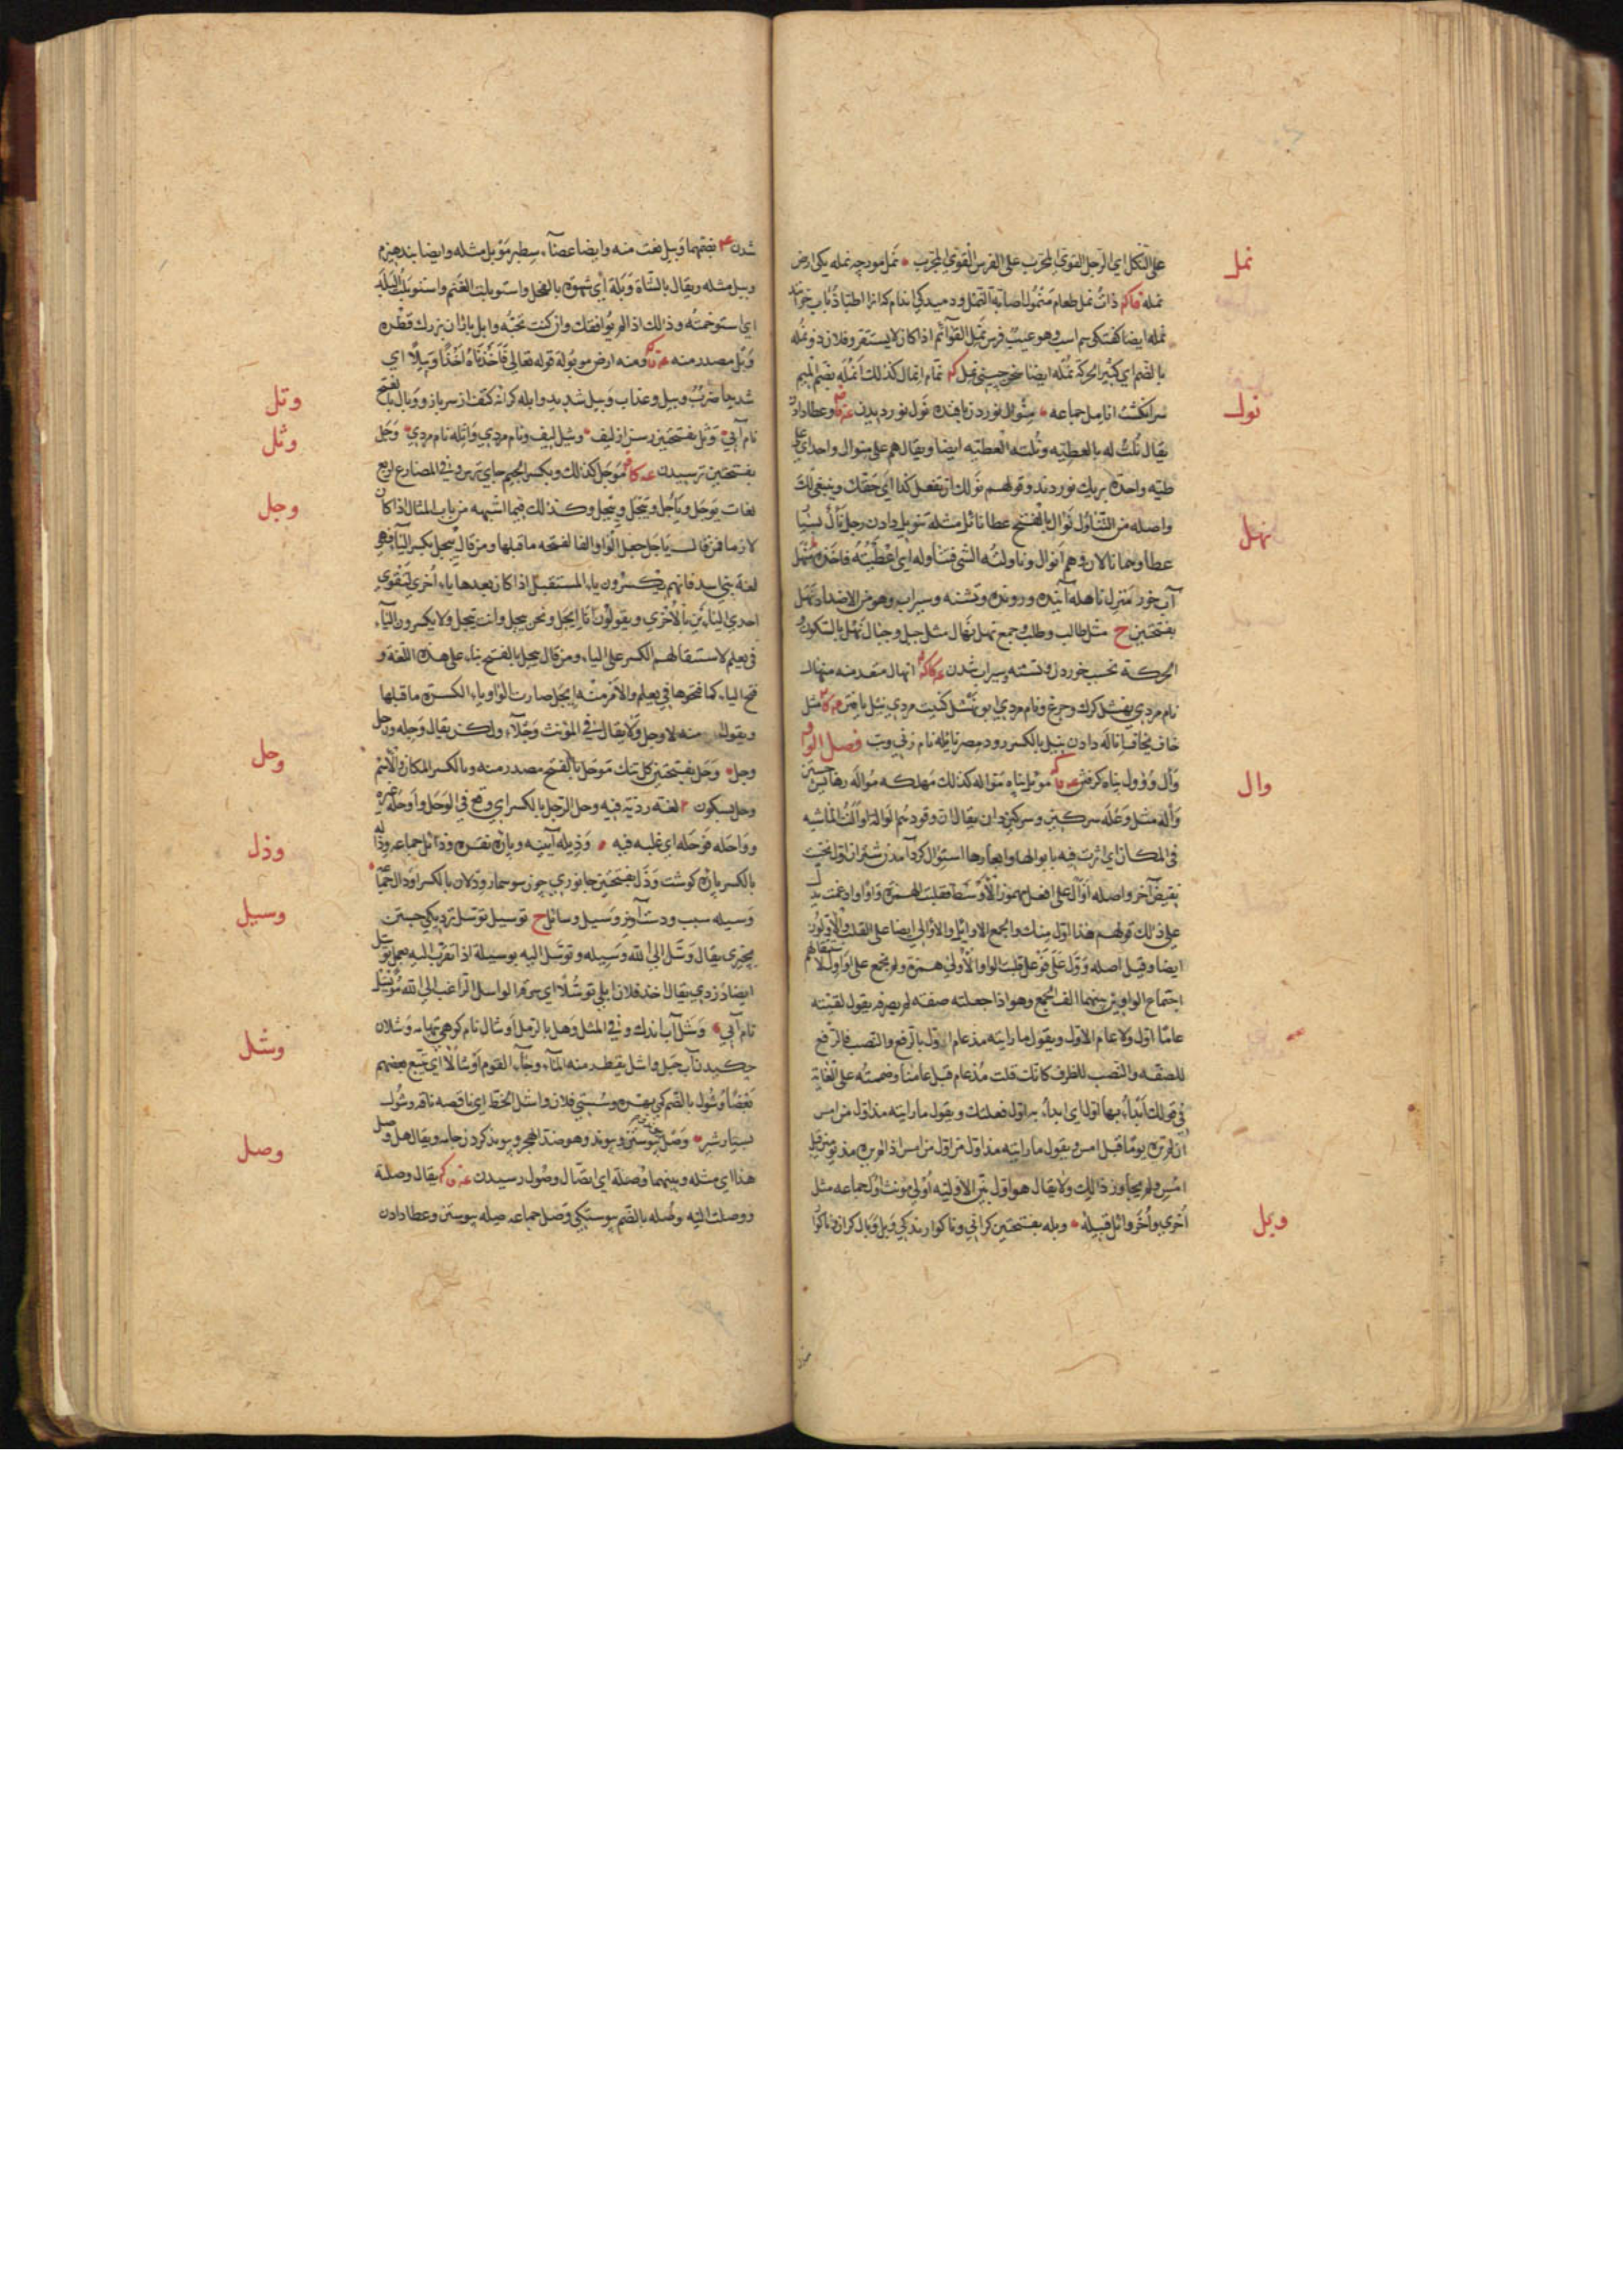 على النكل اي الرجل القوي المجرب على الفرس القوي المجرب نمل مورچه نمله يكى ارض
نمل
نمله ذات نمل طعام منمول اصابة النمل
نمله ايضا كفتكى سم اسپ وهو عيب فرس نمل القوائم اذا كان لا يستقر وفلان ذو نمله
بالضم اي كثير الحركة نمله ايضا سخن چينى نمل نمام انمال كذلك انمله بضم الميم
سر انكشت انامل جماعه منوال نورد بافنده نول نورديدن وعطا دادن
نول
يقال نلت له بالعطيه ونلته العطيه ايضا ويقال هم على منوال واحد اي على
طيه واحدة بريك نوردند وقولهم نولك ان تفعل كذا اي حقك وينبغى لك
واصله من التناول نوال بالفتح عطا نائل مثله تنويل دادن رجل نال بسيار
عطا وهما نالان وهم انوال وناولته الشي فتناوله اي اعطيته فاخذ منهل
نهل
آب خور منزل ناهله آينده ورونده وتشنه وسيراب وهو من الاضداد نهل
بفتحتين ح مثل طالب وطلب وجمع نهل نهال مثل جبل وجبال نهل بالسكون
الحركة نخست خوردن وتشنه وسيراب شدن انهال متعد منه منهال
نام مردي نهشل كرك وچرغ ونام مردي ابو نهشل كنيت مردي مثل
خاف يخاف انالة دادن نيل بالكسر رود مصر نايله نام زني وبت فصل الواو
وال ووول پناه كرفتن موئل پناه مواله كذلك مهلكه مواله رها جستن
وال
واله مثل وعله سركين وسركين دان يقال ان وقودهم لواله اوالت الماشيه
في المكان اي اثرت فيه بابوالها وابعارها استيوال كرد آمدن شتران اول نخست
نقيض آخر واصله اوأل على افعل مهموز الاوسط فقلبت الهمزة واوا وادغمت يدل
على ذلك قولهم هذا اول منك والجمع الاوائل والاوالي ايضا على القلب والاولون
ايضا وقيل اصله وول على فوعل قلبت الواو الاولى همزة ولم يجمع على اواول لاستثقالهم
اجتماع الواوين بينهما الف الجمع وهو اذا جعلته صفته لم يصرفه يقول لقيته
عاما اول ولا عام الاول ويقول ما رايته مذ عام اول بالرفع والنصب فالرفع
للصفه والنصب للظرف كانك قلت مذ عام قبل عامنا وضمته على الغاية
في قولك ابدأ بهذا اول اي ابدأ به اول فعلك ويقول ما رايته مذ اول من امس
ان لم تره يوما قبل امس ويقول ما رايته مذ اول من اول من امس اذا لم يره مذ يومين قبل
امس ولم يجاوز ذلك ولا يقال هو اول بين الاوليه اولى مونث اول جماعه مثل
اخرى واخر وائل قبيله وبله بفتحتين كرانى وناكوارندكي وبل وبال كران وناكوار
وبل
شدن بضمهما وبيل نعت منه وايضا عصا سطبر موبل مثله وايضا بند هيزم
وبيل مثله ويقال بالشاة وبلة اي شهوة بالفحل واستوبلت الغنم واستوبلت البلد
اي استوخمته وذلك اذا لم يوافقك وان كنت تحبه وابل باران بزرك قطره
وبل مصدر منه ومنه ارض موبولة قوله تعالى فاخذناه اخذا وبيلا اي
شديدا ضرب وبيل وعذاب وبيل شديد وابله كرانه كتف از سر بازو ووبال بالفتح
وتل
نام آبي وثل بفتحتين رسن از ليف وثيل ليف ونام مردي واثله نام مردي وجل
وثل
بفتحتين ترسيدن موجل كذلك وبكسر الجيم جاي ترس وفي المضارع اربع
لغات يوجل وياجل وييجل وييجل وكذلك فيما اشبهه من باب المثال اذا كان
وجل
لازما فمن قال ياجل جعل الواو الفا لفتحه ما قبلها ومن قال ييجل بكسر الياء فهو
لغة بنى اسد فانهم يكسرون ياء المستقبل اذا كان بعدها ياء اخرى لتقوي
احدى اليائين بالاخرى ويقولون انا ايجل ونحن نيجل وانت تيجل ولا يكسرون الياء
في يعلم لاستثقالهم الكسر على الياء ومن قال ييجل بالفتح بناء على هذه اللغة و
فتح الياء كما فتحوها في يعلم والامر منه ايجل صارت الواو ياء الكسرة ما قبلها
ويقول منه لاوجل ولا يقال في المونث وجلاء ولكن يقال وجله وحل
وجل وحل بفتحتين كل تنك موحل بالفتح مصدر منه وبالكسر المكان والاسم
وحل
وحل بسكون لغته رديه فيه وحل الرجل بالكسر اي وقع في الوحل واوحله غيره
وواحله فوحله اي غلبه فيه وذيله آينه وپاره نقره وذائل جماعه وذاله
وذل
بالكسر پاره كوشت ودل بفتحتين جانوري چون سوسمار وورلان بالكسر اورال جماعة
وسيله سبب ودست آويز وسيل وسائل ح توسيل توسل نزديكي جستن
وسيل
بچيزى يقال وسل الى الله وسيله وتوسل اليه بوسيلة اذا تقرب اليه بعمل توسل
ايضا دزدي يقال اخذ فلان ابلى توسلا اي سرقة الواسل الراغب الى الله مويسل
نام آبي وشل آب اندك وفي المثل وهل بالرمل اوشال نام كوهى تهامه وشلان
وشل
چكيدن آب جبل واشل يقطر منه الماء وجاء القوم اوشالا اي يتبع بعضهم
بعضا وشول بالضم كم بهره وسستي فلان واشل الحظ اي ناقصه ناقه وشول
بسيار شير وصل پيوستن وپيوند وهو ضد الهجر وپيوند كردن جامه ويقال هل وصل
وصل
هذا اي مثله وبينهما وصلة اي اتصال وصول رسيدن يقال وصلة
ووصلت اليه وصله بالضم پيوستكي وصل جماعه صله پيوستن وعطا دادن